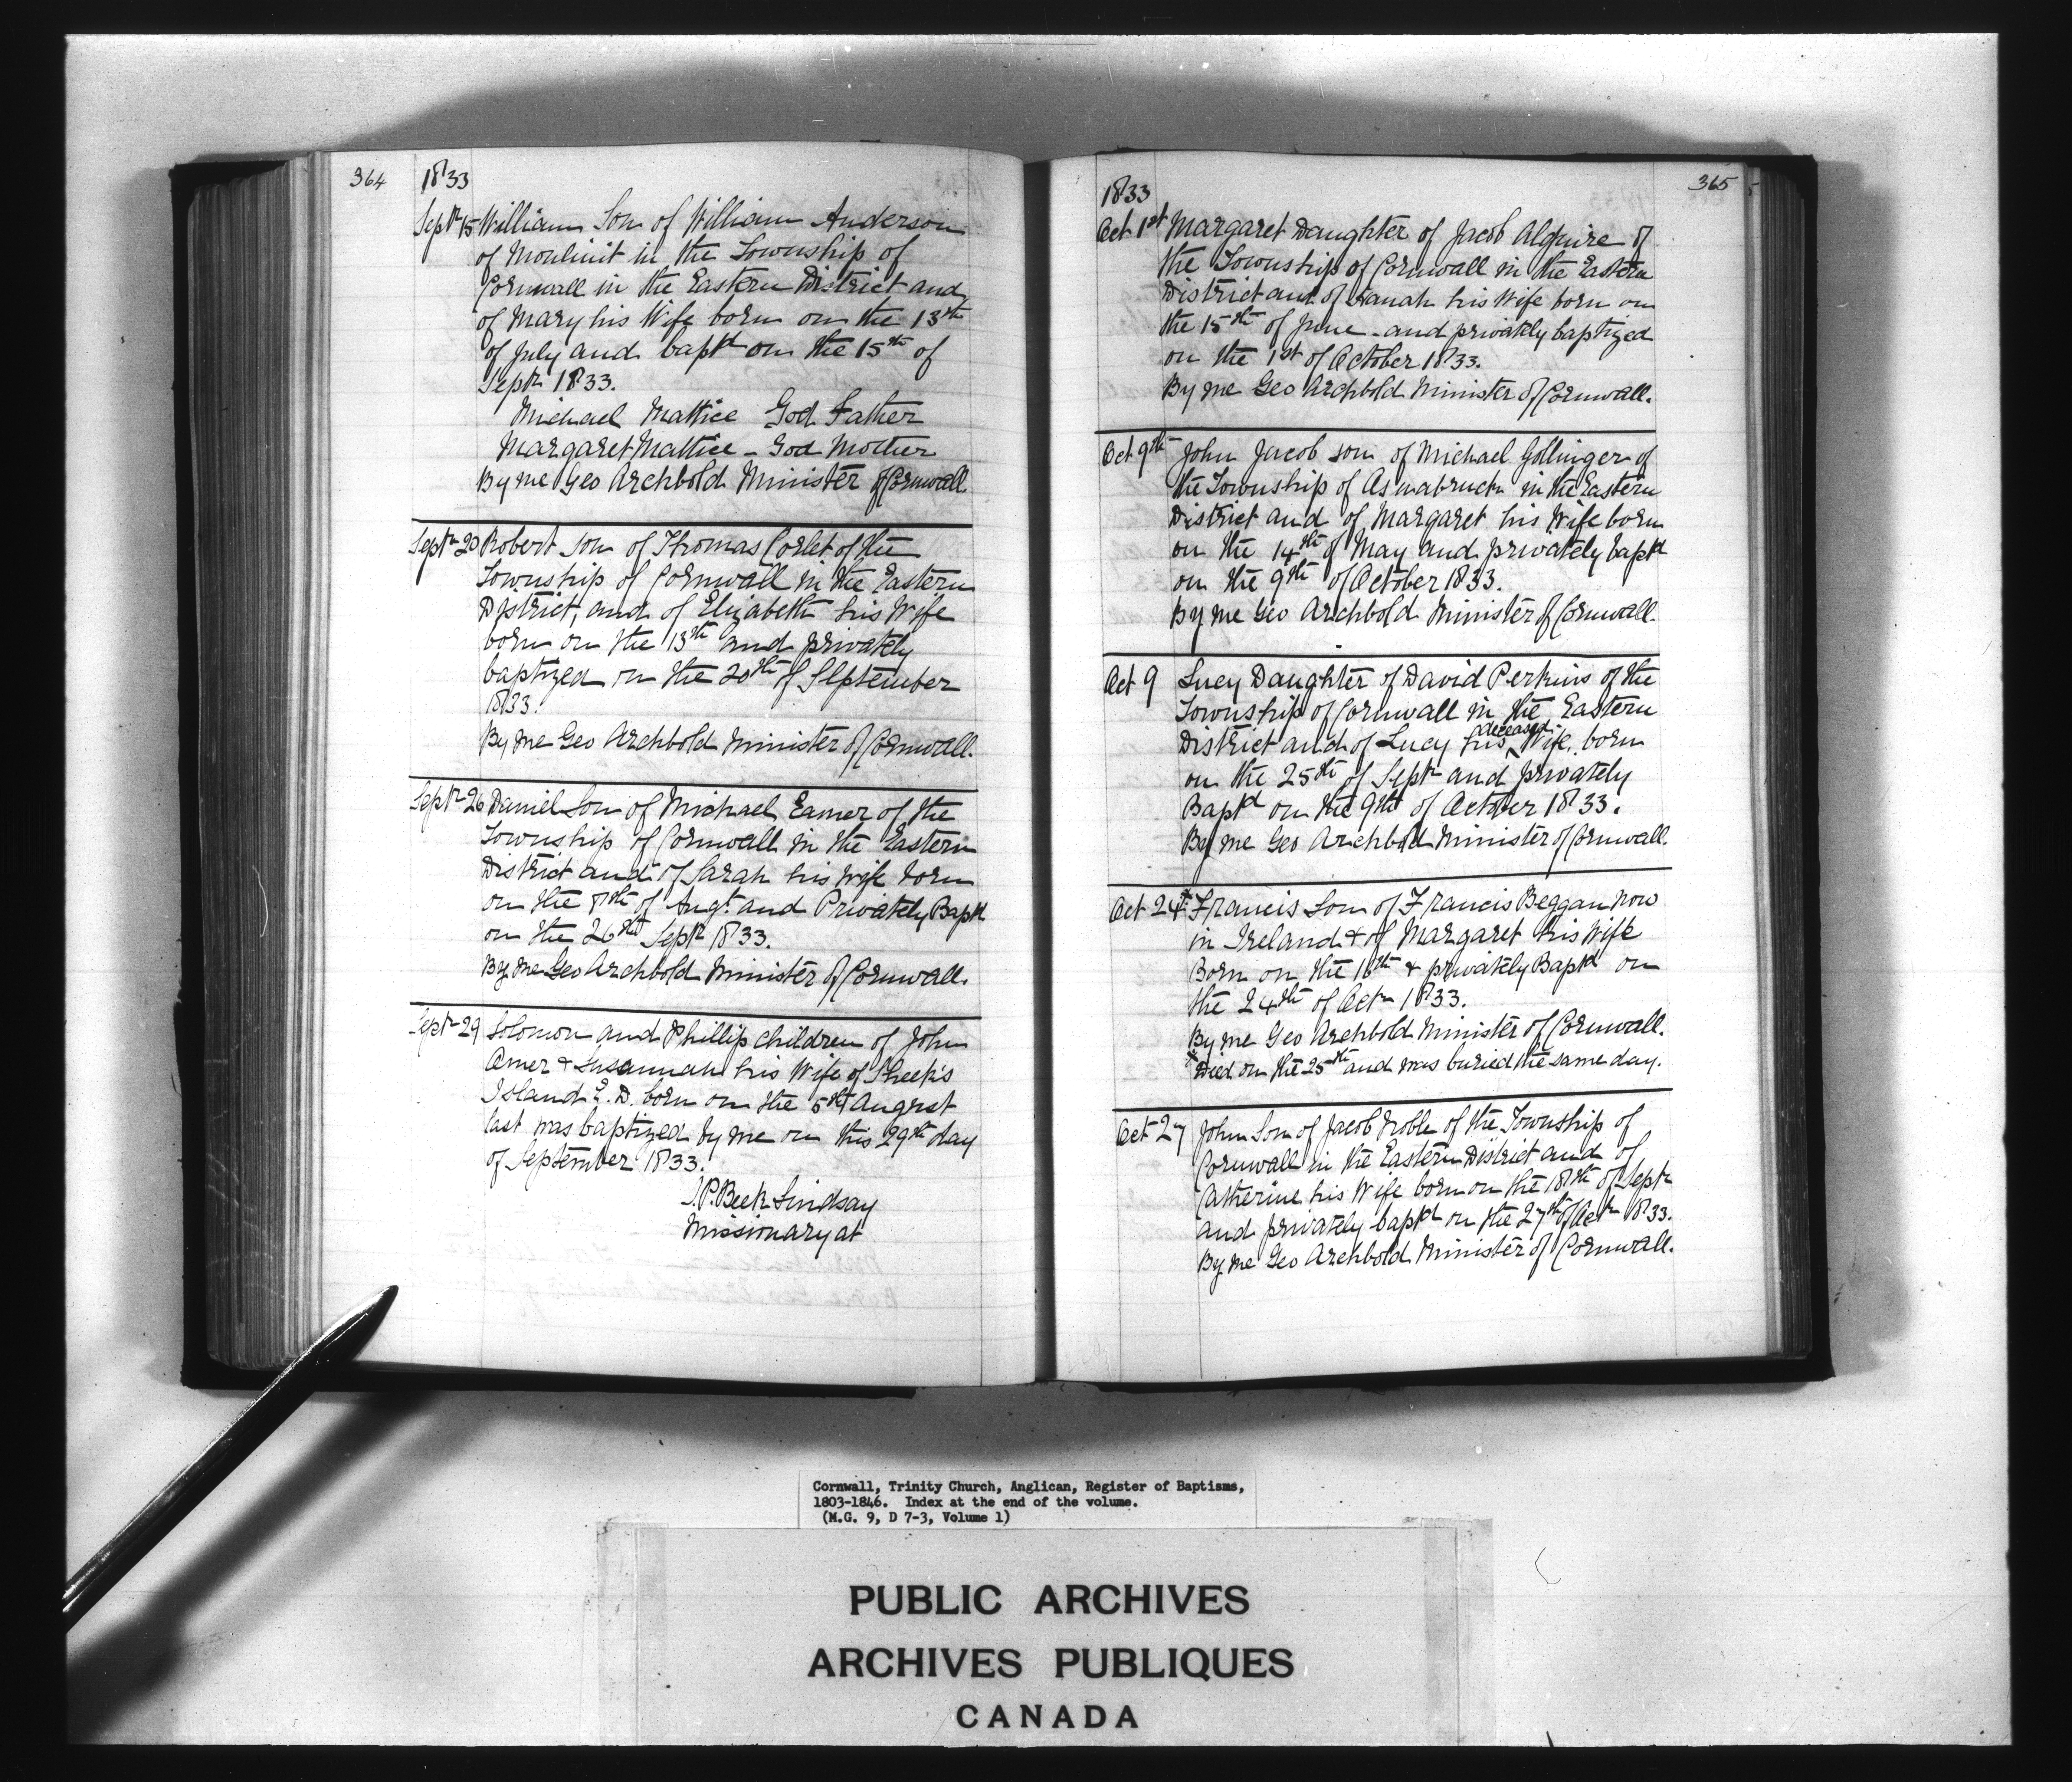 364
1833
Septr 15 William Son of William Anderson
of Moulinit in the Township of
Cornwall in the Eastern District and
of Mary his Wife born on the 13th
of July and bapd on the 15th of
Septr 1833.
Michael Mattice God Father
Margaret Mattice - God Mother
By me Geo Archbold Minister of Cornwall
Septr 20 Robert Son of Thomas Corlet of the
Township of Cornwall in the Eastern
District, and of Elizabeth his Wife
born on the 13th and privately
baptized on the 20th of September
1833.
By me Geo Archbold Minister of Cornwall.
Septr 26 Daniel Son of Michael Eamer of the
Township of Cornwall in the Eastern
District and of Sarah his Wife born
on the 8th of Augt. and Privately Bapd
on the 26th Septr 1833.
By me Geo Archbold Minister of Cornwall.
Septr 29 Solomon and Phillip children of John
Amer & Susannah his Wife of Sheek's
Island E. D. born on the 5th August
last was baptized by me on this 29th day
of September 1833.
J. P. Beek Lindsay
Missionary at
365
1833
Oct 1st Margaret Daughter of Jacob Alguire of
the Township of Cornwall in the Eastern
District and of Hanah his Wife born on
the 15th of June - and privately baptized
on the 1st of October 1833.
By me Geo Archbold Minister of Cornwall.
Oct 9th John Jacob son of Michael Gollinger of
the Township of Osnabruck in the Eastern
District and of Margaret his Wife born
on the 14th of May and privately bapd
on the 9th of October 1833.
By me Geo Archbold Minister of Cornwall.
Oct 9 Lucy Daughter of David Perkins of the
Township of Cornwall in the Eastern
District and of Lucy his deceased Wife, born
on the 25th of Septr and privately
Bapd on the 9th of October 1833.
By me Geo Archbold Minister of Cornwall.
Oct 24* Francis Son of Francis Beggan now
in Ireland & of Margaret his Wife
Born on the 16th & privately Bapd on
the 24th of Octr 1833.
By me Geo Archbold Minister of Cornwall.
* Died on the 25th and was buried the same day.
Oct 27 John Son of Jacob Noble of the Township of
Cornwall in the Eastern District and of
Catherine his Wife born on the 18th of Septr
and privately bapd on the 27th of Octr 1833.
By me Geo Archbold Minister of Cornwall.
Cornwall, Trinity Church, Anglican, Register of Baptisms,
1803-1846. Index at the end of the volume.
(M.G. 9, D 7-3, Volume 1)
PUBLIC ARCHIVES
ARCHIVES PUBLIQUES
CANADA